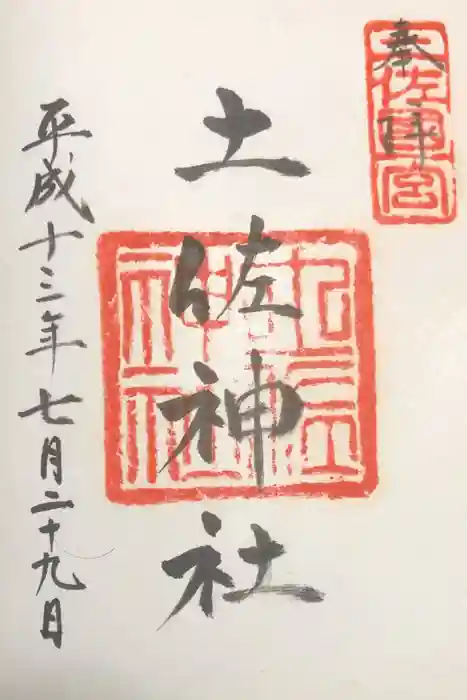 奉拝
土佐神社
平成十三年七月二十九日